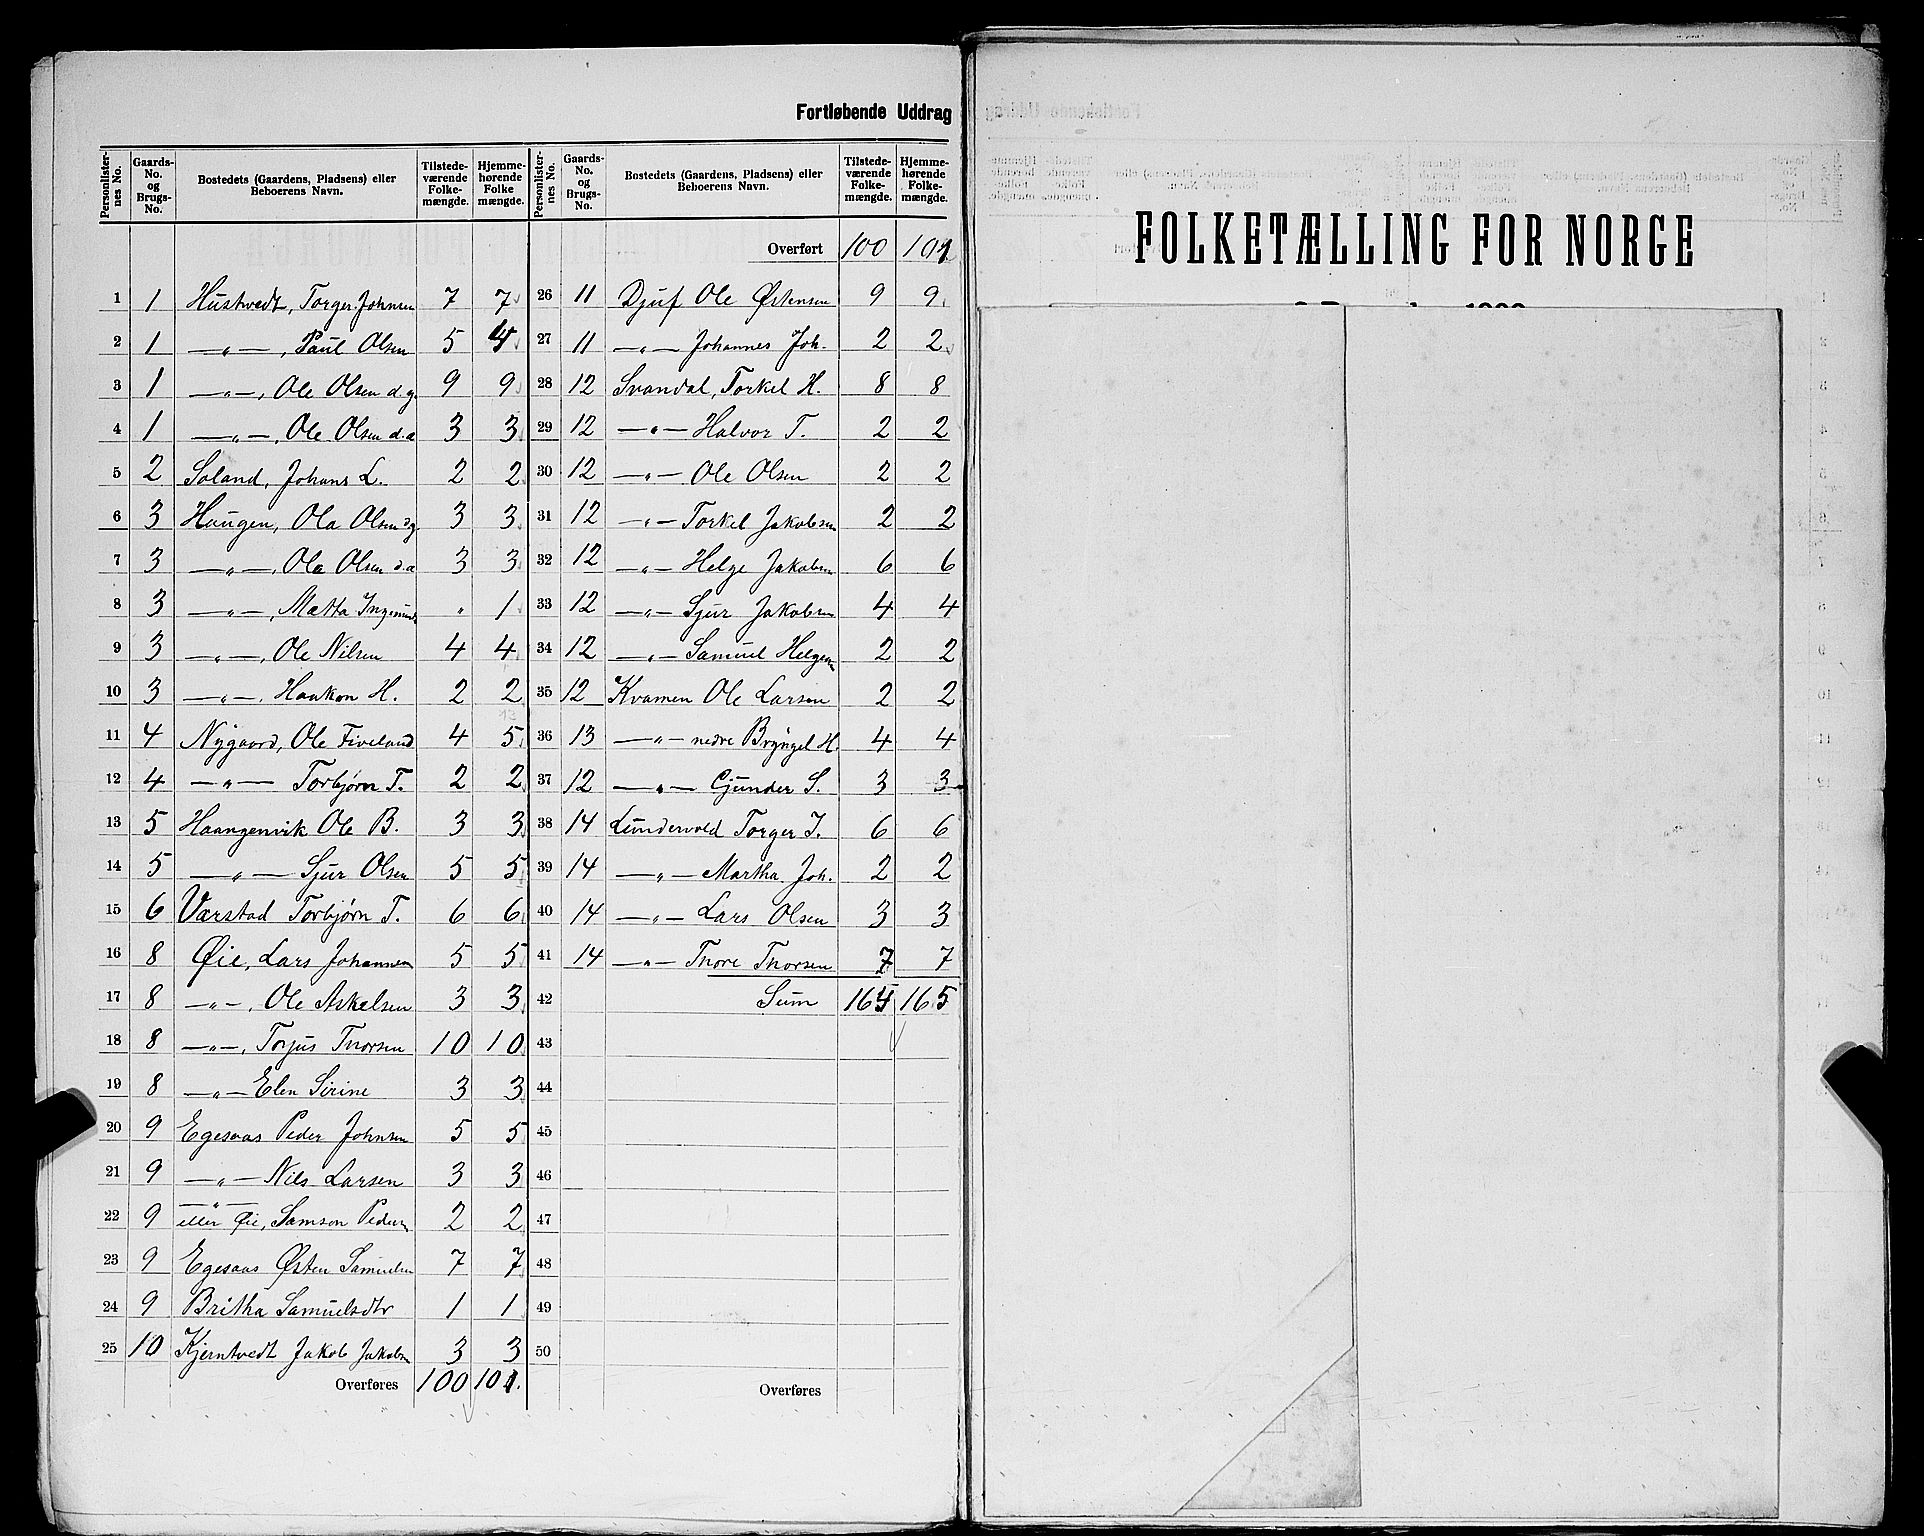 Fortløbende Uddrag
Personlister-nes No. | Gaards-No. og Brugs-No. | Bostedets (Gaardens, Pladsens) eller Beboerens Navn. | Tilstede-værende Folke-mængde. | Hjemme-hørende Folke mængde.
1 | 1 | Hustvedt, Torger Johnsen | 7 | 7
2 | 1 | —„—, Paul Olsen | 5 | 4
3 | 1 | —„—, Ole Olsen d.y. | 9 | 9
4 | 1 | —„—, Ole Olsen d.æ | 3 | 3
5 | 2 | Soland, Johans L. | 2 | 2
6 | 3 | Haugen, Ola Olsen d.y. | 3 | 3
7 | 3 | —„—, Ola Olsen d.æ | 3 | 3
8 | 3 | —„—, Mætta Ingemunds | „ | 1
9 | 3 | —„—, Ole Nilsen | 4 | 4
10 | 3 | —„—, Haakon H. | 2 | 2
11 | 4 | Nygaard, Ole Fiveland | 4 | 5
12 | 4 | —„— Torbjørn T. | 2 | 2
13 | 5 | Haangenvik Ole B. | 3 | 3
14 | 5 | —„— Sjur Olsen | 5 | 5
15 | 6 | Værstad Torbjørn T. | 6 | 6
16 | 8 | Øie, Lars Johannesen | 5 | 5
17 | 8 | —„—, Ole Askelsen | 3 | 3
18 | 8 | —„—, Torjus Thorsen | 10 | 10
19 | 8 | —„— Elen Sirine | 3 | 3
20 | 9 | Egesaas Peder Johnsen | 5 | 5
21 | 9 | —„— Nils Larsen | 3 | 3
22 | 9 | —„— eller Øie, Samson Pedersen | 2 | 2
23 | 9 | Egesaas Østen Samuelsen | 7 | 7
24 | 9 | Britha Samuelsdtr | 1 | 1
25 | 10 | Kjerntvedt Jakob Jakobsen | 3 | 3
Overføres | 100 | 101.
Personlister-nes No. | Gaards-No. og Brugs-No. | Bostedets (Gaardens, Pladsens) eller Beboerens Navn. | Tilstede-værende Folke-mængde. | Hjemme-hørende Folke-mængde.
Overført | 100 | 101
26 | 11 | Djuf Ole Østensen | 9 | 9
27 | 11 | —„— Johannes Joh. | 2 | 2
28 | 12 | Svandal, Torkel H. | 8 | 8
29 | 12 | —„— Halvor T. | 2 | 2
30 | 12 | —„— Ole Olsen | 2 | 2
31 | 12 | —„— Torkel Jakobsen | 2 | 2
32 | 12 | —„— Helge Jakobsen | 6 | 6
33 | 12 | —„— Sjur Jakobsen | 4 | 4
34 | 12 | —„— Samuel Helgesen | 2 | 2
35 | 12 | Kvamen Ole Larsen | 2 | 2
36 | 13 | —„— nedre Bryngel H. | 4 | 4
37 | 12 | —„— Gunder S. | 3 | 3
38 | 14 | Lundervold Torger T. | 6 | 6
39 | 14 | —„— Martha Joh. | 2 | 2
40 | 14 | —„— Lars Olsen | 3 | 3
41 | 14 | —„— Thore Thorsen | 7 | 7
42 | Sum | 164 | 165
43
44
45
46
47
48
49
50
Overføres
FOLKETÆLLING FOR NORGE